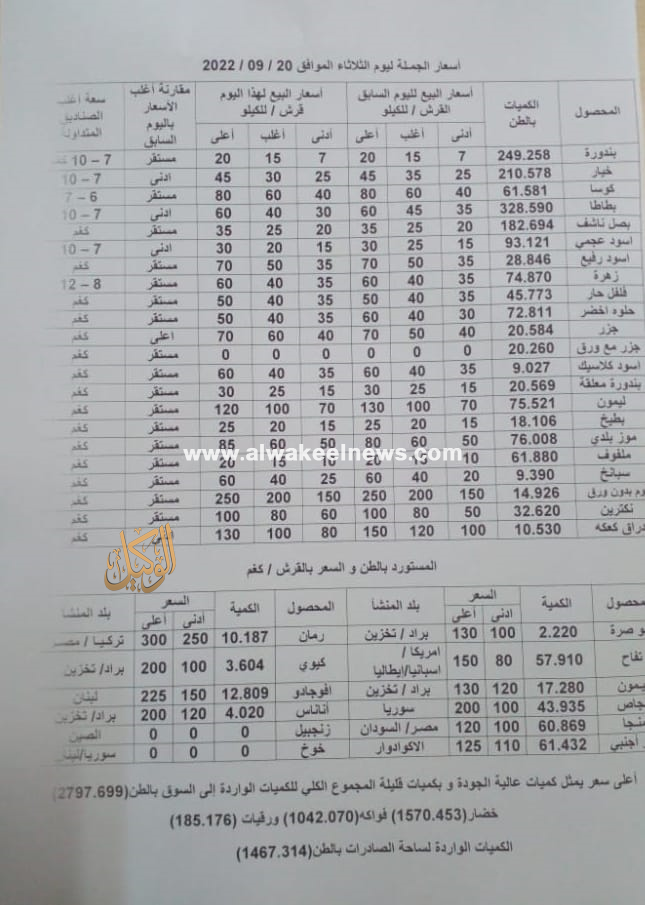 أسعار الجملة ليوم الثلاثاء الموافق 20 / 09 / 2022
المحصول الكميات بالطن أسعار البيع لليوم السابق القرش / للكيلو أسعار البيع لهذا اليوم قرش / للكيلو مقارنة أغلب الأسعار باليوم السابق سعة أغلب الصناديق المتداولة
أدنى أغلب أعلى أدنى أغلب أعلى
بندورة 249.258 7 15 20 7 15 20 مستقر 7 – 10 كغم
خيار 210.578 25 35 45 25 30 45 أدنى 7 – 10
كوسا 61.581 40 60 80 40 60 80 مستقر 6 – 7
بطاطا 328.590 35 45 60 30 40 60 أدنى 7 – 10
بصل ناشف 182.694 20 25 35 20 25 35 مستقر كغم
اسود عجمي 93.121 15 25 30 15 20 30 أدنى 7 – 10
اسود رفيع 28.846 35 50 70 35 50 70 مستقر كغم
زهرة 74.870 35 40 60 35 40 60 مستقر 8 – 12
فلفل حار 45.773 35 40 50 35 40 50 مستقر كغم
حلوه اخضر 72.811 30 40 60 35 40 50 مستقر كغم
جزر 20.584 40 50 70 40 60 70 أعلى كغم
جزر مع ورق 20.260 0 0 0 0 0 0 مستقر كغم
اسود كلاسيك 9.027 35 40 60 35 40 60 مستقر كغم
بندورة معلقة 20.569 15 25 30 15 25 30 مستقر كغم
ليمون 75.521 70 100 130 70 100 120 مستقر كغم
بطيخ 18.106 15 20 25 15 20 25 مستقر كغم
موز بلدي 76.008 50 60 80 50 60 85 مستقر كغم
www.alwakeelnews.com
ملفوف 61.880 10 20 10 15 20 مستقر كغم
سبانخ 9.390 20 40 60 25 40 60 مستقر كغم
وم بدون ورق 14.926 150 200 250 150 200 250 مستقر كغم
نكترين 32.620 50 80 100 60 80 100 مستقر كغم
دراق كعكه 10.530 100 120 150 80 100 130 كغم
الوكيل
المستورد بالطن و السعر بالقرش / كغم
المحصول الكمية السعر بلد المنشأ المحصول الكمية السعر بلد المنشأ
أدنى أعلى أدنى أعلى
و صرة 2.220 100 130 براد / تخزين رمان 10.187 250 300 تركيا / مصر
تفاح 57.910 80 150 امريكا / اسبانيا/إيطاليا كيوي 3.604 100 200 براد/ تخزين
يمون 17.280 120 130 براد / تخزين افوجادو 12.809 150 225 لبنان
جاص 43.935 100 200 سوريا أناناس 4.020 120 200 براد/ تخزين
منجا 60.869 100 120 مصر/ السودان زنجبيل 0 0 0 الصين
أجنبي 61.432 110 125 الاكوادوار خوخ 0 0 0 سوريا/لبنان
أعلى سعر يمثل كميات عالية الجودة و بكميات قليلة المجموع الكلي للكميات الواردة إلى السوق بالطن(2797.699)
خضار(1570.453) فواكه(1042.070) ورقيات (185.176)
الكميات الواردة لساحة الصادرات بالطن(1467.314)